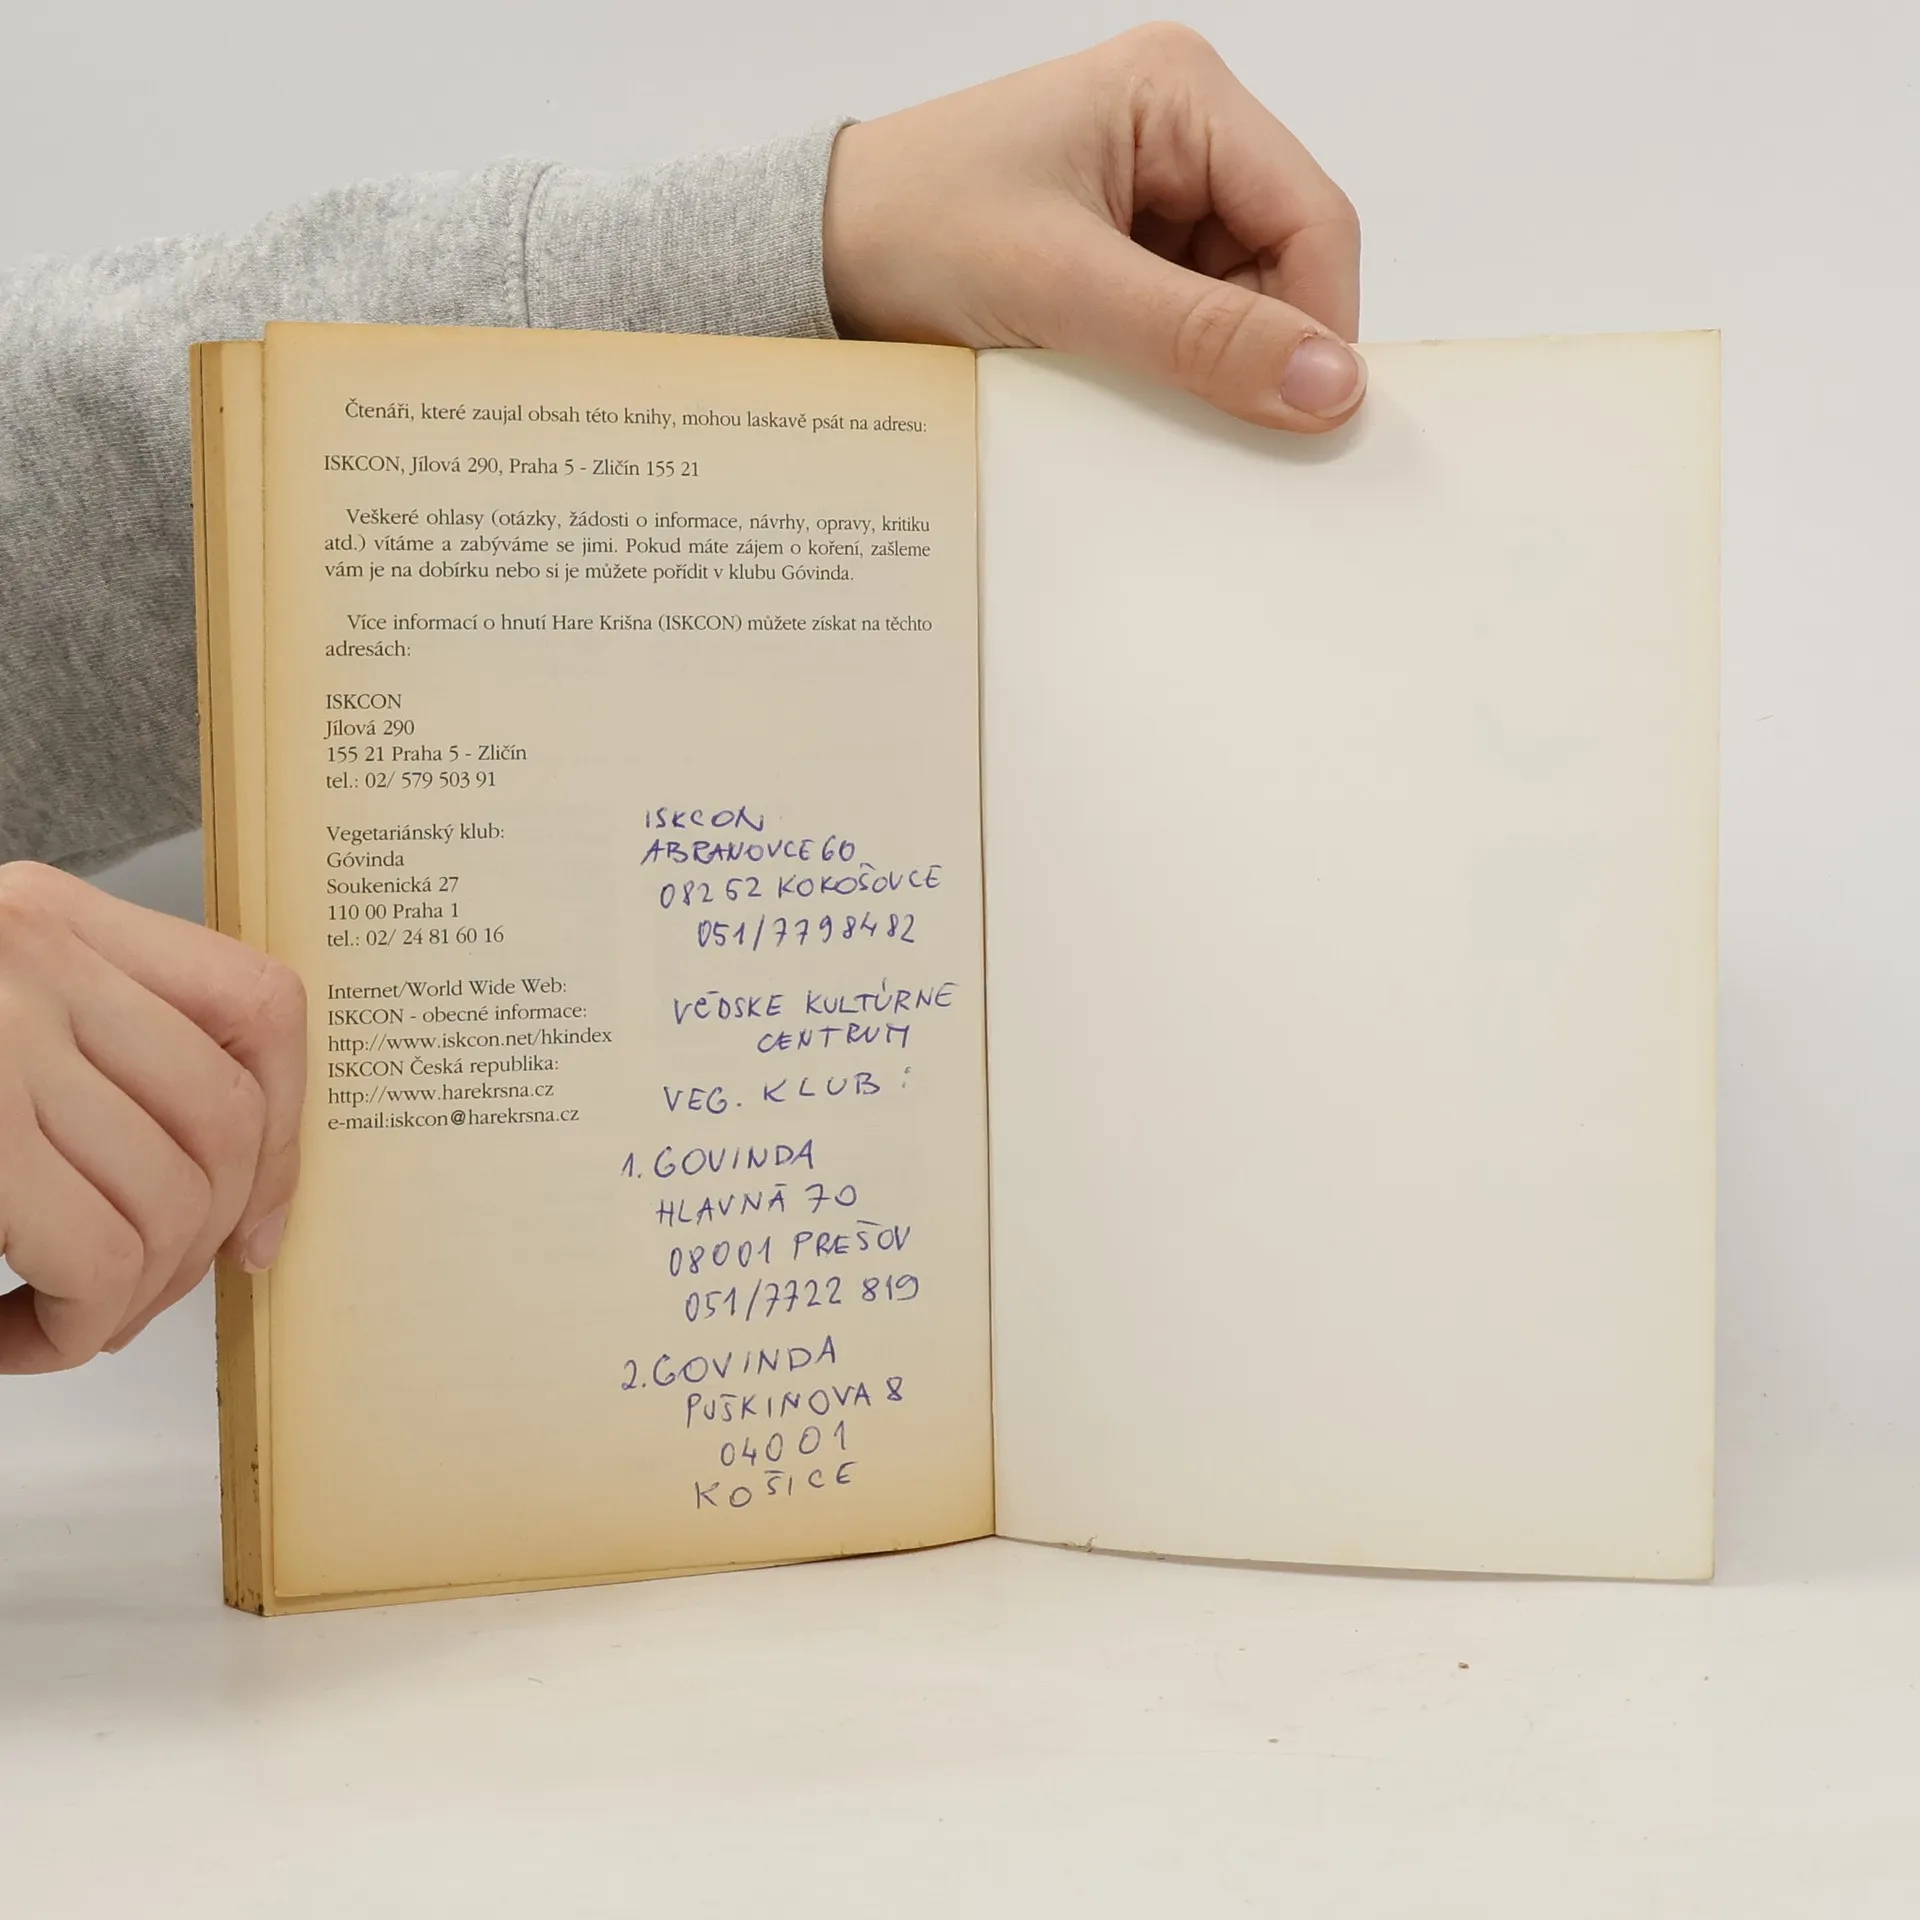 Čtenáři, které zaujal obsah této knihy, mohou laskavě psát na adresu:
ISKCON, Jílová 290, Praha 5 - Zličín 155 21
Veškeré ohlasy (otázky, žádosti o informace, návrhy, opravy, kritiku
atd.) vítáme a zabýváme se jimi. Pokud máte zájem o koření, zašleme
vám je na dobírku nebo si je můžete pořídit v klubu Góvinda.
Více informací o hnutí Hare Krišna (ISKCON) můžete získat na těchto
adresách:
ISKCON
Jílová 290
155 21 Praha 5 - Zličín
tel.: 02/ 579 503 91
Vegetariánský klub:
Góvinda
Soukenická 27
110 00 Praha 1
tel.: 02/ 24 81 60 16
Internet/World Wide Web:
ISKCON - obecné informace:
http://www.iskcon.net/hkindex
ISKCON Česká republika:
http://www.harekrsna.cz
e-mail:iskcon@harekrsna.cz
ISKCON
ABRANOVCE 60
082 52 KOKOŠOVCE
051/7798482
VÉDSKE KULTÚRNE
CENTRUM
VEG. KLUB:
1. GOVINDA
HLAVNÁ 70
08001 PREŠOV
051/7722 819
2. GOVINDA
PUŠKINOVA 8
04001
KOŠICE